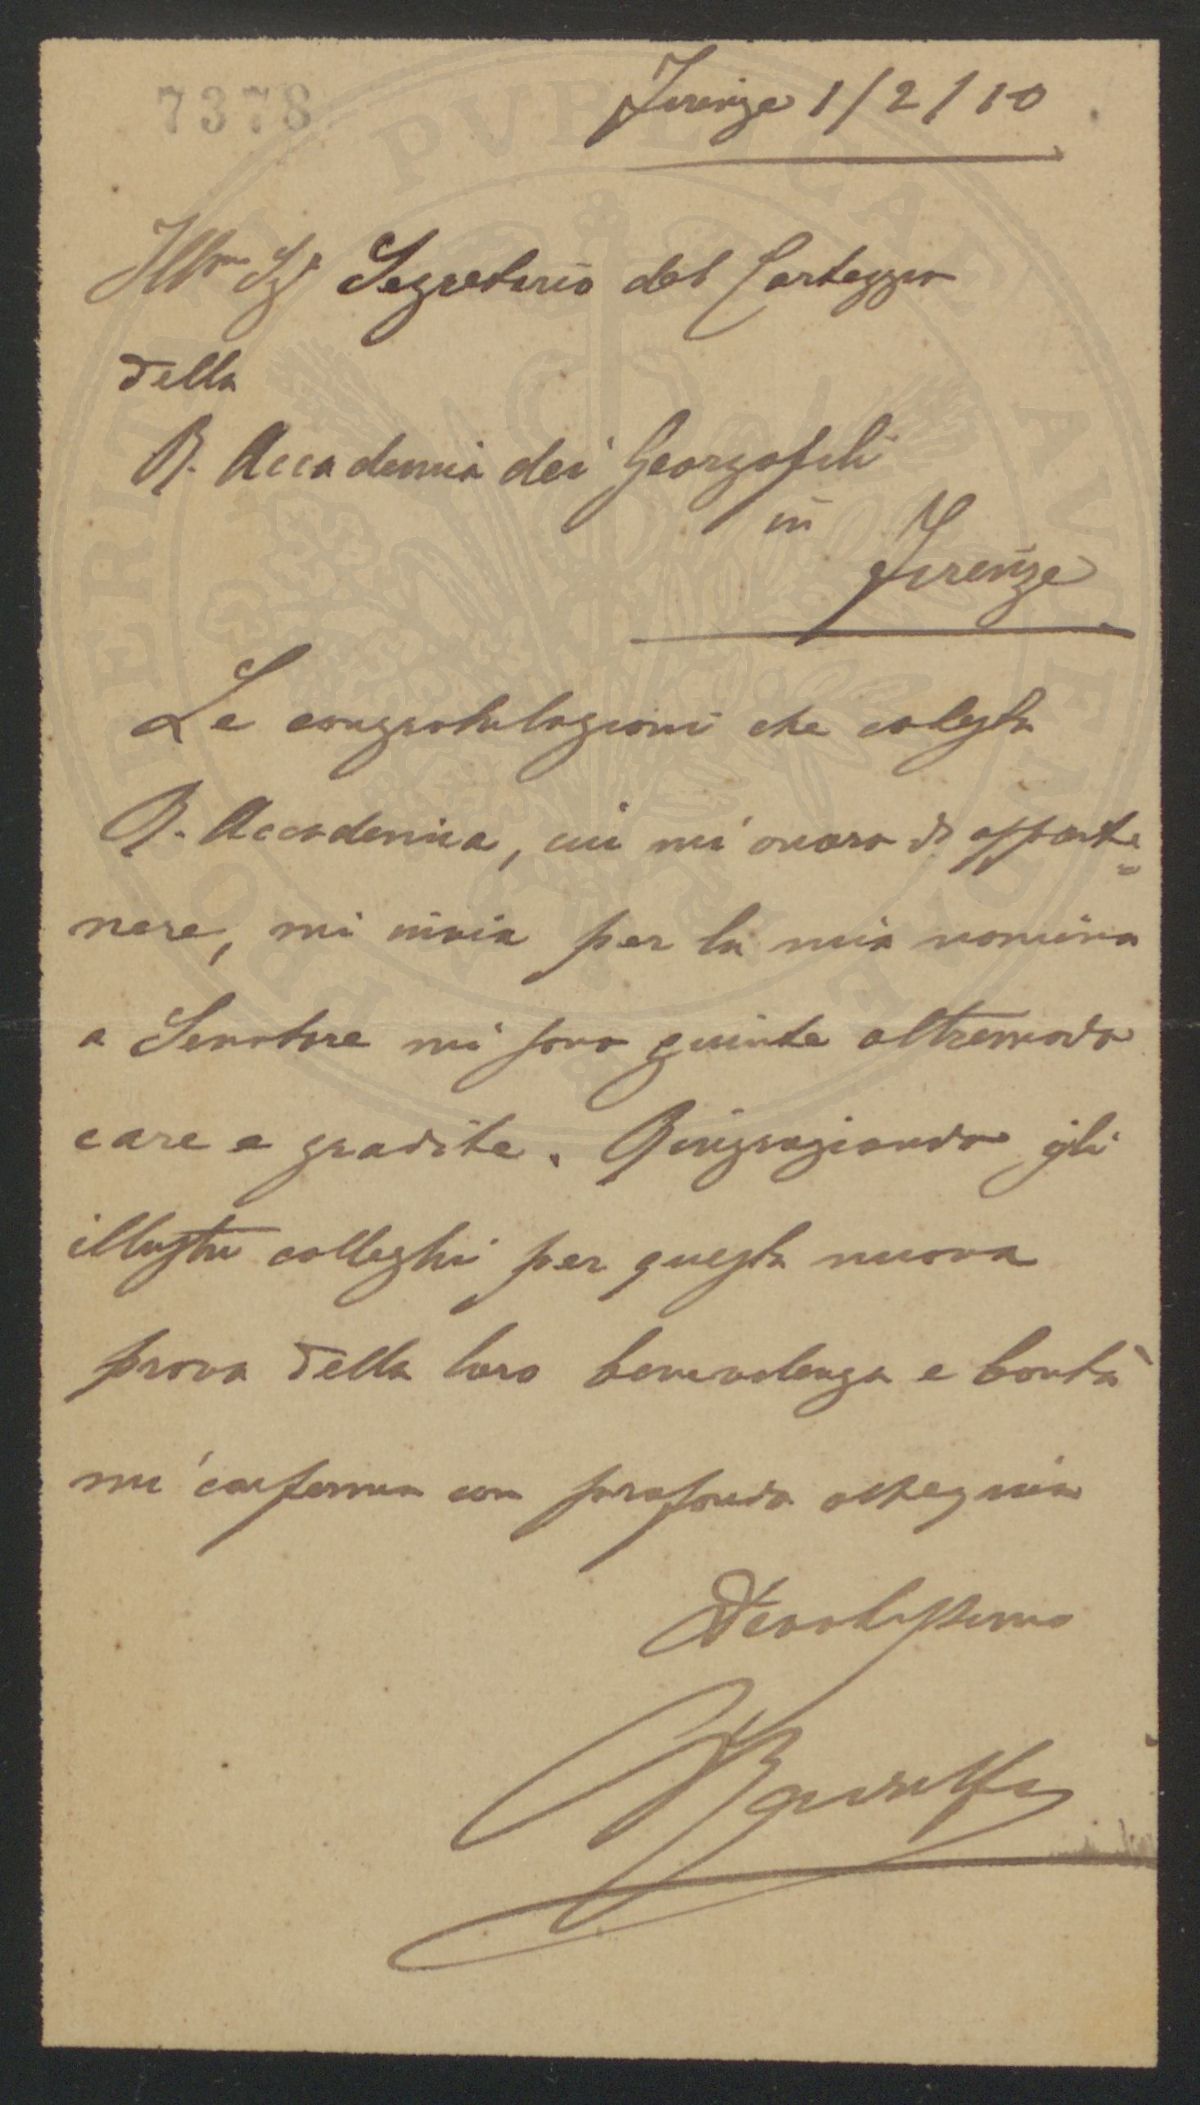 7378
Firenze 1/2/10
Ill.mo Sig.r Segretario del Carteggio
della
R. Accademia dei Georgofili
in
Firenze
Le congratulazioni che codesta
R. Accademia, cui mi onoro di apparte=
nere, mi invia per la mia nomina
a Senatore mi sono giunte oltremodo
care e gradite. Ringraziando gli
illustri colleghi per questa nuova
prova della loro benevolenza e bontà
mi confermo con profondo ossequio
Devotissimo